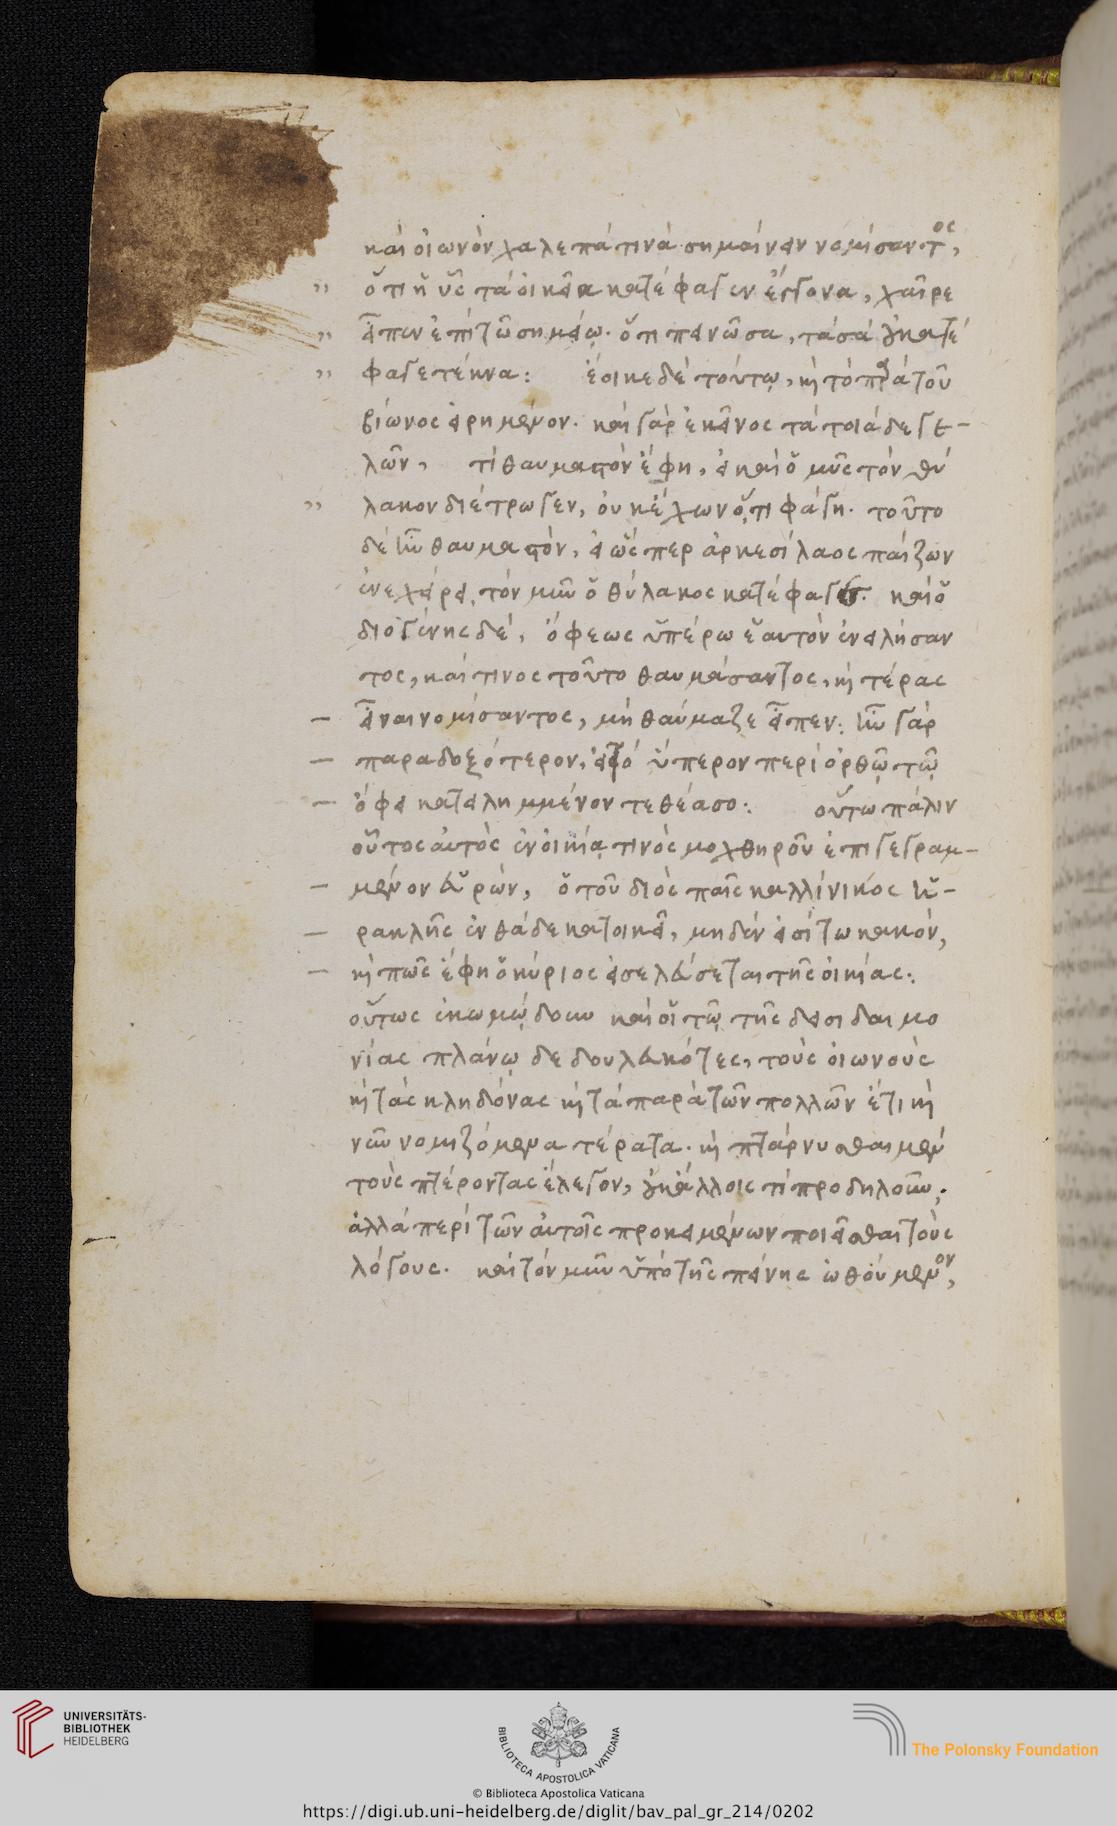 καὶ οἰωνὸν χαλεπά τινα σημαίνειν νομίσαντος,
ὅτι ἡ ὗς τὰ οἰκεῖα κατέφαγεν ἔγγονα, χαῖρε
εἶπεν ἐπὶ τῷ σημείῳ. ὅτι πεινῶσα, τὰ σὰ οὐ κατέ
φαγε τέκνα: ἔοικε δὲ τούτῳ, καὶ τὸ παρὰ τοῦ
βίωνος εἰρημένον. καὶ γὰρ ἐκεῖνος τὰ τοιάδε γε-
λῶν, τί θαυμαστὸν ἔφη, εἰ καὶ ὁ μῦς τὸν θύ
λακον διέτρωγεν, οὐκ ἔχων ὅ,τι φάγῃ. τοῦτο
δὲ ἦν θαυμαστὸν, εἰ ὥσπερ ἀρκεσίλαος παίζων
ἐνεχείρει, τὸν μῦν ὁ θύλακος κατέφαγεν. καὶ ὁ
διογένης δέ, ὄφεως ὑπέρῳ ἑαυτὸν ἐνειλήσαν
τος, καί τινος τοῦτο θαυμάσαντος, καὶ τέρας
εἶναι νομίσαντος, μὴ θαύμαζε εἶπεν: ἦν γὰρ
παραδοξότερον, εἰ τὸ ὕπερον περὶ ὀρθῷ τῷ
ὄφει κατειλημμένον τεθέασο: οὕτω πάλιν
οὗτος αὐτὸς ἐν οἰκίᾳ τινὸς μοχθηροῦ ἐπιγεγραμ-
μένον εὑρών, ὁ τοῦ διὸς παῖς καλλίνικος ἡ-
ρακλῆς ἐνθάδε κατοικεῖ, μηδὲν εἰσίτω κακόν,
καὶ πῶς ἔφη ὁ κύριος εἰσελεύσεται τῆς οἰκίας:
οὕτως ἐκωμῴδουν καὶ οἱ τῷ τῆς δεισιδαιμο
νίας πλάνῳ δεδουλευκότες, τοὺς οἰωνοὺς
καὶ τὰς κληδόνας καὶ τὰ παρὰ τῶν πολλῶν ἔτι καὶ
νῦν νομιζόμενα τέρατα. καὶ πτάρνυσθαι μὲν
τοὺς πτέροντας ἔλεγον, οὐκ ἄλλοις τι προδηλοῦν,
ἀλλὰ περὶ τῶν αὐτοῖς προκειμένων ποιεῖσθαι τοὺς
λόγους. καὶ τὸν μῦν ὑπὸ τῆς πείνης ὠθούμενον,
UNIVERSITÄTS-
BIBLIOTHEK
HEIDELBERG
BIBLIOTECA APOSTOLICA VATICANA
The Polonsky Foundation
© Biblioteca Apostolica Vaticana
https://digi.ub.uni-heidelberg.de/diglit/bav_pal_gr_214/0202